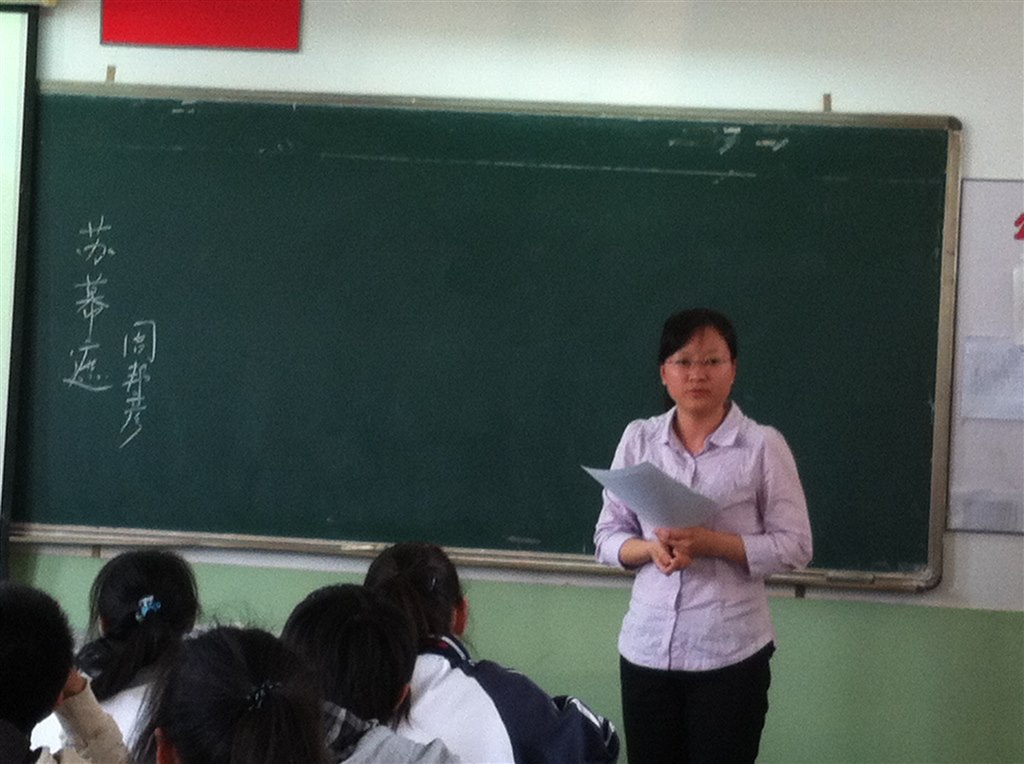 苏幕遮
周邦彦